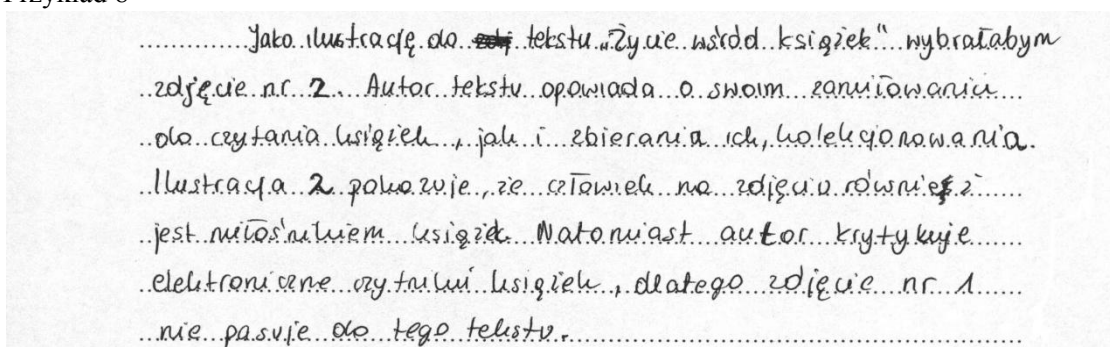 Jako ilustrację do tekstu „Życie wśród książek" wybrałabym
zdjęcie nr 2. Autor tekstu opowiada o swoim zamiłowaniu
do czytania książek, jak i zbierania ich, kolekcjonowania.
Ilustracja 2 pokazuje, że człowiek na zdjęciu również
jest miłośnikiem książek. Natomiast autor krytykuje
elektroniczne czytniki książek, dlatego zdjęcie nr 1
nie pasuje do tego tekstu.